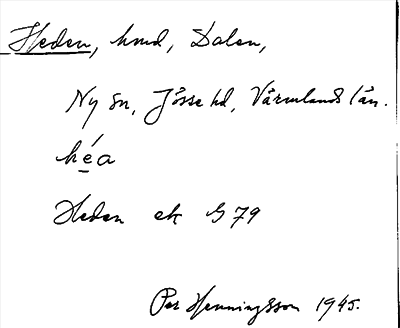 Heden, hmd, Dalen,
Ny sn, Jösse hd, Värmlands län.
héa
Heden ek G 79
Per Henningsson 1945.